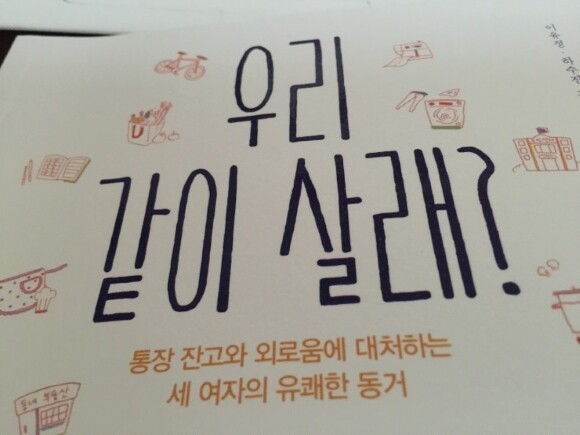 우리
같이 살래?
통장 잔고와 외로움에 대처하는
세 여자의 유쾌한 동거
이유정·하수진
동네 부동산